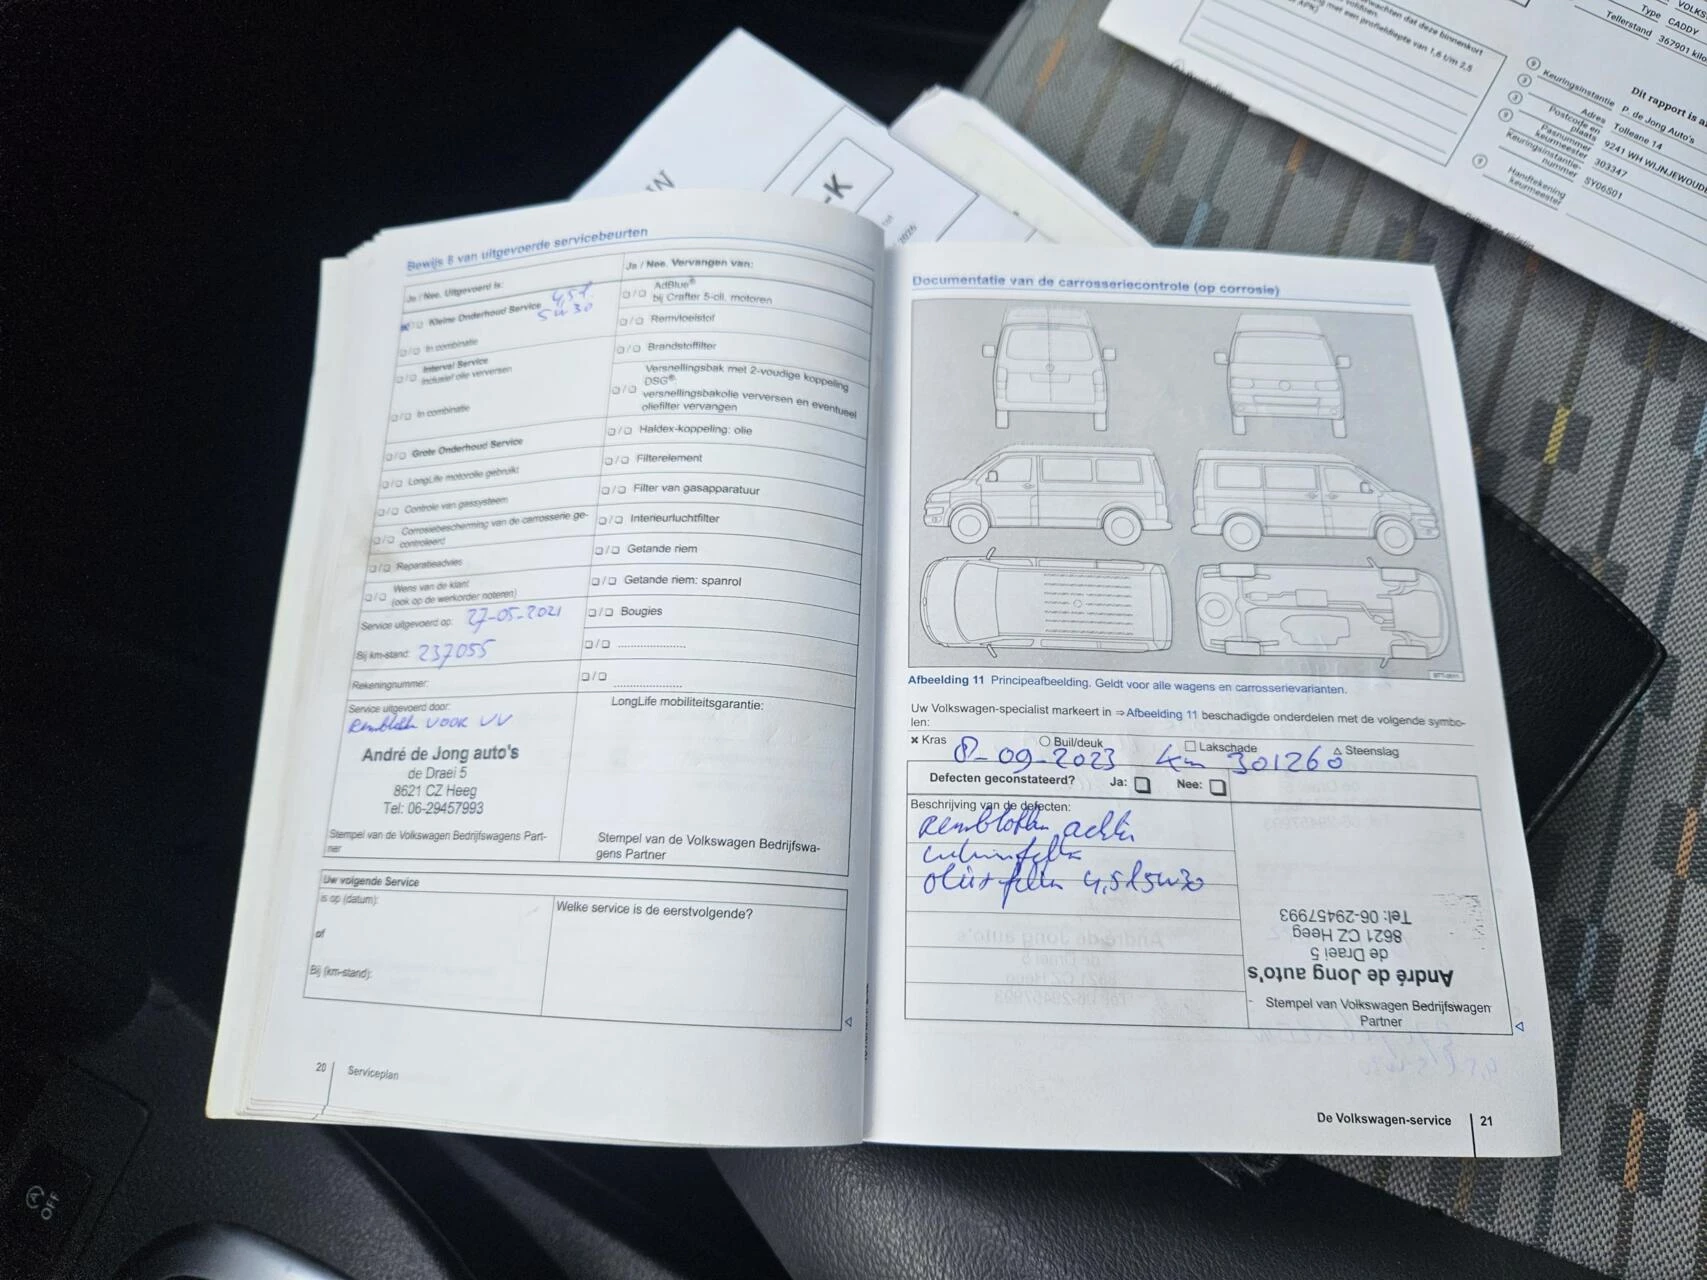 Bewijs 8 van uitgevoerde servicebeurten
Ja / Nee. Uitgevoerd is:
Kleine Onderhoud Service 4,5 l.
5w30
In combinatie
Interval Service
inclusief olie verversen
In combinatie
Grote Onderhoud Service
LongLife motorolie gebruikt
Controle van gassysteem
Corrosiebescherming van de carrosserie ge-
controleerd
Reparatieadvies
Wens van de klant
(ook op de werkorder noteren)
Service uitgevoerd op: 27-05-2021
Bij km-stand: 237055
Rekeningnummer:
Service uitgevoerd door:
Remblokken voor VV
André de Jong auto's
de Draei 5
8621 CZ Heeg
Tel: 06-29457993
Stempel van de Volkswagen Bedrijfswagens Part-
ner
Ja / Nee. Vervangen van:
AdBlue®
bij Crafter 5-cil. motoren
Remvloeistof
Brandstoffilter
Versnellingsbak met 2-voudige koppeling
DSG®:
versnellingsbakolie verversen en eventueel
oliefilter vervangen
Haldex-koppeling: olie
Filterelement
Filter van gasapparatuur
Interieurluchtfilter
Getande riem
Getande riem: spanrol
Bougies
LongLife mobiliteitsgarantie:
Stempel van de Volkswagen Bedrijfswa-
gens Partner
Uw volgende Service
is op (datum):
of
Bij (km-stand):
Welke service is de eerstvolgende?
20
Serviceplan
Documentatie van de carrosseriecontrole (op corrosie)
Afbeelding 11 Principeafbeelding. Geldt voor alle wagens en carrosserievarianten.
Uw Volkswagen-specialist markeert in ⇒ Afbeelding 11 beschadigde onderdelen met de volgende symbo-
len:
× Kras ○ Buil/deuk □ Lakschade △ Steenslag
8-09-2023 km 301260
Defecten geconstateerd? Ja: Nee:
Beschrijving van de defecten:
Remblokken achter
olie + filter 4,5 l 5w30
André de Jong auto's
de Draei 5
8621 CZ Heeg
Tel: 06-29457993
Stempel van Volkswagen Bedrijfswagen
Partner
De Volkswagen-service
21
-K
Type CADDY
Tellerstand 367901
Keuringsinstantie P. de Jong Auto's
Adres Tolleane 14
Postcode en
plaats 9241 WH WIJNJEWOUDE
Pasnummer
keurmeester 303347
Keuringsinstantie-
nummer SY06S01
Handtekening
keurmeester
Dit rapport is
dat deze binnenkort
voldoen.
met een profieldiepte van 1,6 t/m 2,5
APK)
OFF